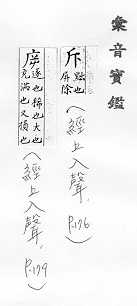 彙音寶鑑
斥 點也 屏除
(經上入聲, P.176)
斥 逐也 梯也 大也 充滿也 又損也
(經上入聲, P.179)